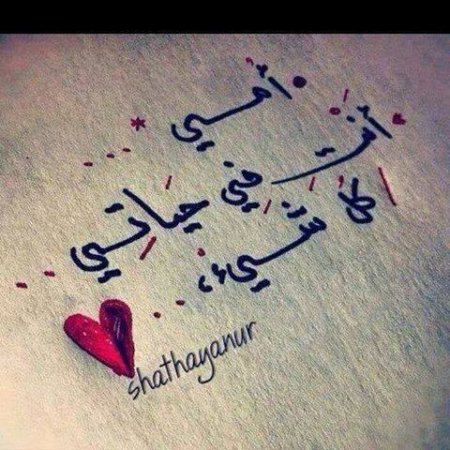 أمي
أنتِ
كل شيء
في حياتي
shathayanur